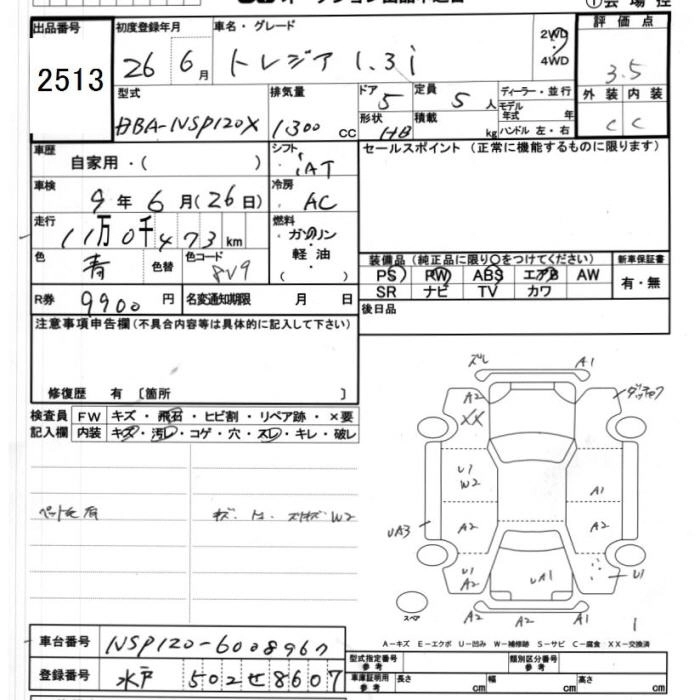 ①会場控
出品番号 初度登録年月 車名・グレード 2WD 評価点
2513 26年6月 トレジア 1.3i 4WD 3.5
型式 排気量 ドア 5 定員 5人 ディーラー・並行 外装 内装
DBA-NSP120X 1300cc 形状 HB 積載 kg モデル年式 年 ハンドル 左・右 C C
車歴 自家用・( ) シフト AT セールスポイント (正常に機能するものに限ります)
車検 9年6月(26日) 冷房 AC
走行 11万0千473km 燃料 ガソリン・軽油・( )
色 青 色替 色コード 8V9 装備品 (純正品に限り○をつけてください) 新車保証書
PS PW ABS エアB AW 有・無
R券 9900円 名変通知期限 月 日 SR ナビ TV カワ
注意事項申告欄(不具合内容等は具体的に記入して下さい) 後日品
修復歴 有 〔箇所 〕
検査員 FW キズ・飛石・ヒビ割・リペア跡・×要
記入欄 内装 キズ・汚レ・コゲ・穴・スレ・キレ・破レ
ズレ A1
A2 XX
U1 W2 A1
UA3 A2 A2
U1 A2 UA1 U1
スペア A2 A2 A1 1
ペット毛有 W2
A-キズ E-エクボ U-凹み W-補修跡 S-サビ C-腐食 XX-交換済
車台番号 NSP120-6008967 型式指定番号 参考 類別区分番号 参考
登録番号 水戸 502せ8607 車庫証明用 参考 長さ cm 幅 cm 高さ cm